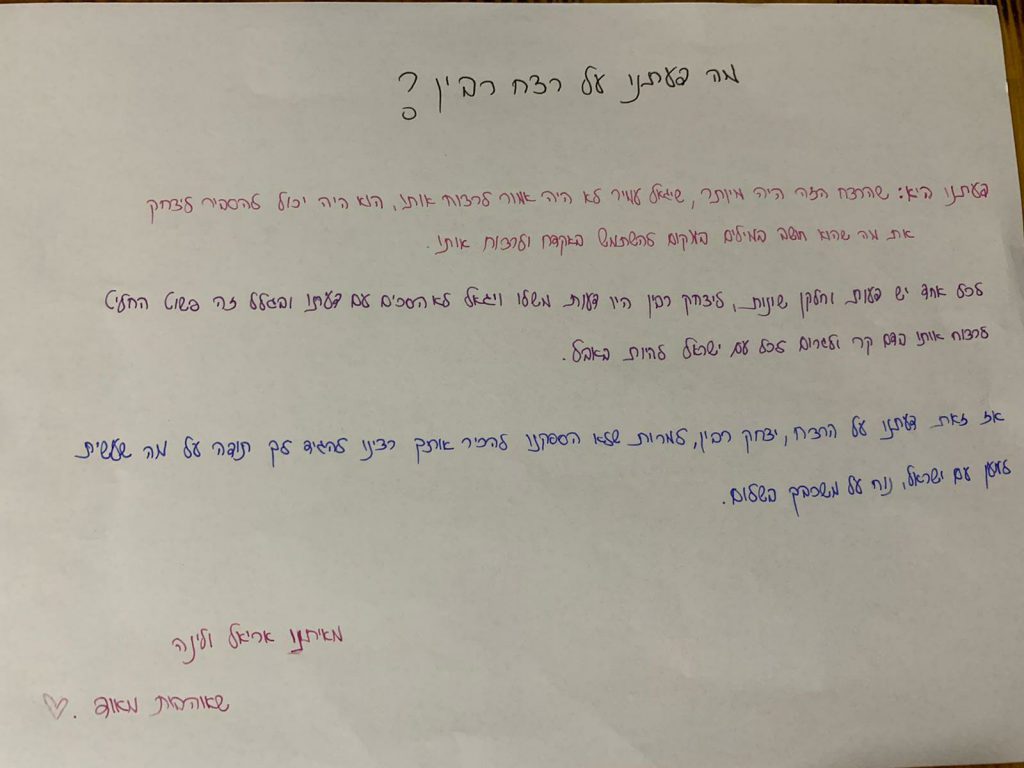 מה דעתנו על רצח רבין ?
דעתנו היא: שהרצח הזה היה מיותר, שיגאל עמיר לא היה אמור לרצוח אותו, הוא היה יכול להסביר ליצחק
את מה שהוא חושב במילים במקום להשתמש באקדח ולרצוח אותו.
לכל אחד יש דעות וחלקן שונות, ליצחק רבין היו דעות משלו ויגאל לא הסכים עם דעתו ובגלל זה פשוט החליט
לרצוח אותו בדם קר ולגרום לכל עם ישראל להיות באבל.
אז זאת דעתנו על הרצח, יצחק רבין, למרות שלא הספקנו להכיר אותך רצינו להגיד לך תודה על מה שעשית
למען עם ישראל, נוח על משכבך בשלום.
מאיתנו אריאל ולינה
שאוהבות מאוד. ♡